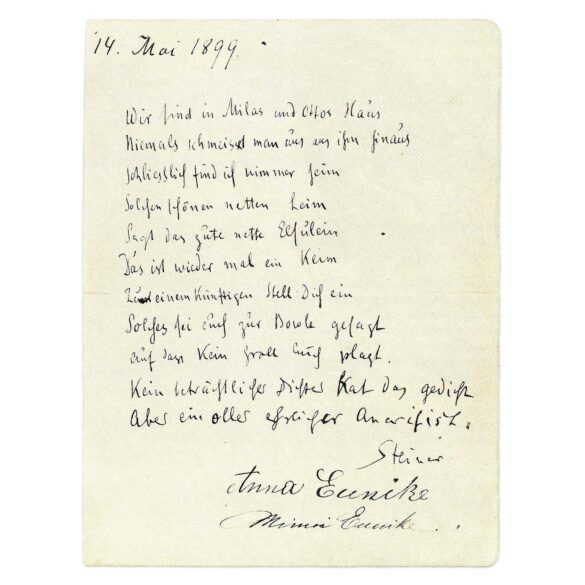 14. Mai 1899.
Wir sind in Milas und Ottos Haus
Niemals schmeisst man uns aus ihm hinaus
Schliesslich find ich nimmer heim
Solchen schönen netten Leim
Sagt das gute nette Elfulein
Das ist wieder mal ein Keim
Zum einem künftigen Stell Dich ein
Solches sei euch zur Bowle gesagt
auf dass kein groll Euch plagt.
Kein beträchtlicher Dichter hat das gedicht
Aber ein oller ehrlicher Anarchist.
Steiner
Anna Eunike
Eunike.